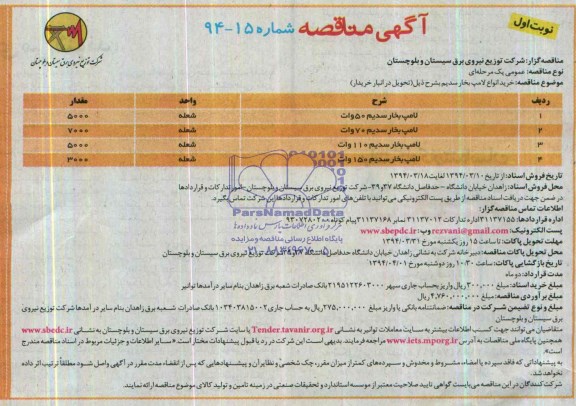 نوبت اول
آگهی مناقصه شماره ۱۵-۹۴
شرکت توزیع نیروی برق سیستان و بلوچستان
مناقصه گزار: شرکت توزیع نیروی برق سیستان و بلوچستان
نوع مناقصه: عمومی یک مرحله‌ای
موضوع مناقصه: خرید انواع لامپ بخار سدیم بشرح ذیل (تحویل در انبار خریدار)
ردیف شرح واحد مقدار
۱ لامپ بخار سدیم ۵۰ وات شعله ۵۰۰۰
۲ لامپ بخار سدیم ۷۰ وات شعله ۷۰۰۰
۳ لامپ بخار سدیم ۱۱۰ وات شعله ۵۰۰۰
۴ لامپ بخار سدیم ۱۵۰ وات شعله ۳۰۰۰
تاریخ فروش اسناد: از تاریخ ۱۳۹۴/۰۳/۱۰ لغایت ۱۳۹۴/۰۳/۱۸
محل فروش اسناد: زاهدان خیابان دانشگاه - حدفاصل دانشگاه ۳۷ و ۳۹- شرکت توزیع نیروی برق سیستان و بلوچستان - امور تدارکات و قراردادها
در ضمن جهت دریافت اسناد مناقصه از طریق پست الکترونیکی می‌توانید با تلفن‌های امور تدارکات و قراردادها این شرکت تماس بگیرید.
اطلاعات تماس مناقصه گزار:
اداره قراردادها: ۳۱۱۳۷۱۵۵ اداره تدارکات ۳۱۱۳۷۰۱۲ نمابر ۳۱۱۳۷۱۶۸ پیام کوتاه: ۹۳۰۷۲۸۰۲
پست الکترونیک: rezvani@gmail.com وب: www.sbepdc.ir
مهلت تحویل پاکات: تا ساعت ۱۵ روز یکشنبه مورخ ۱۳۹۴/۰۳/۳۱
محل تحویل پاکات مناقصه: دبیرخانه شرکت به نشانی زاهدان خیابان دانشگاه حدفاصل دانشگاه ۳۷ و ۳۹ شرکت توزیع نیروی برق سیستان و بلوچستان
تاریخ بازگشایی پاکات: ساعت ۱۰:۳۰ روز دوشنبه مورخ ۱۳۹۴/۰۴/۰۱
مدت قرارداد: دو ماه
مبلغ خرید اسناد: مبلغ ۳۰۰,۰۰۰ ریال واریز به حساب جاری سپهر ۲۱۹۵۱۲۲۶۰۳۰۰۰ بانک صادرات شعبه برق زاهدان بنام سایر درآمدها توانیر
مبلغ برآوردی مناقصه: مبلغ ۴,۷۶۰,۰۰۰,۰۰۰ ریال
مبلغ و نوع تضمین شرکت در مناقصه: ضمانتنامه بانکی یا واریز مبلغ ۲۷۵,۰۰۰,۰۰۰ ریال به حساب جاری ۱۰۳۴۰۳۸۱۵۰۰۲ بانک صادرات شعبه برق زاهدان بنام سایر درآمدها شرکت توزیع نیروی
برق سیستان و بلوچستان
متقاضیان می توانند جهت کسب اطلاعات بیشتر به سایت معاملات توانیر به نشانی Tender.tavanir.org.ir یا سایت شرکت توزیع نیروی برق سیستان و بلوچستان به نشانی www.sbepdc.ir
همچنین پایگاه ملی مناقصات به آدرس www.iets.mporg.ir مراجعه فرمایند. بدیهی است این شرکت در رد یا قبول پیشنهادات مختار است * سایر اطلاعات و جزئیات مربوط در اسناد مناقصه مندرج
است*
به پیشنهاداتی که فاقد سپرده یا امضاء، مشروط و مخدوش و سپرده‌های کمتر از میزان مقرر، چک شخصی و نظایر آن و پیشنهادهایی که پس از انقضاء مدت مقرر در آگهی واصل شود مطلقاً ترتیب اثر داده
نخواهد شد.
شرکت کنندگان در این مناقصه می‌بایست گواهی تایید صلاحیت معتبر از موسسه استاندارد و تحقیقات صنعتی در زمینه تامین و تولید کالای موضوع مناقصه ارائه نمایند.
ParsNamadData
پایگاه اطلاع رسانی مناقصه و مزایده